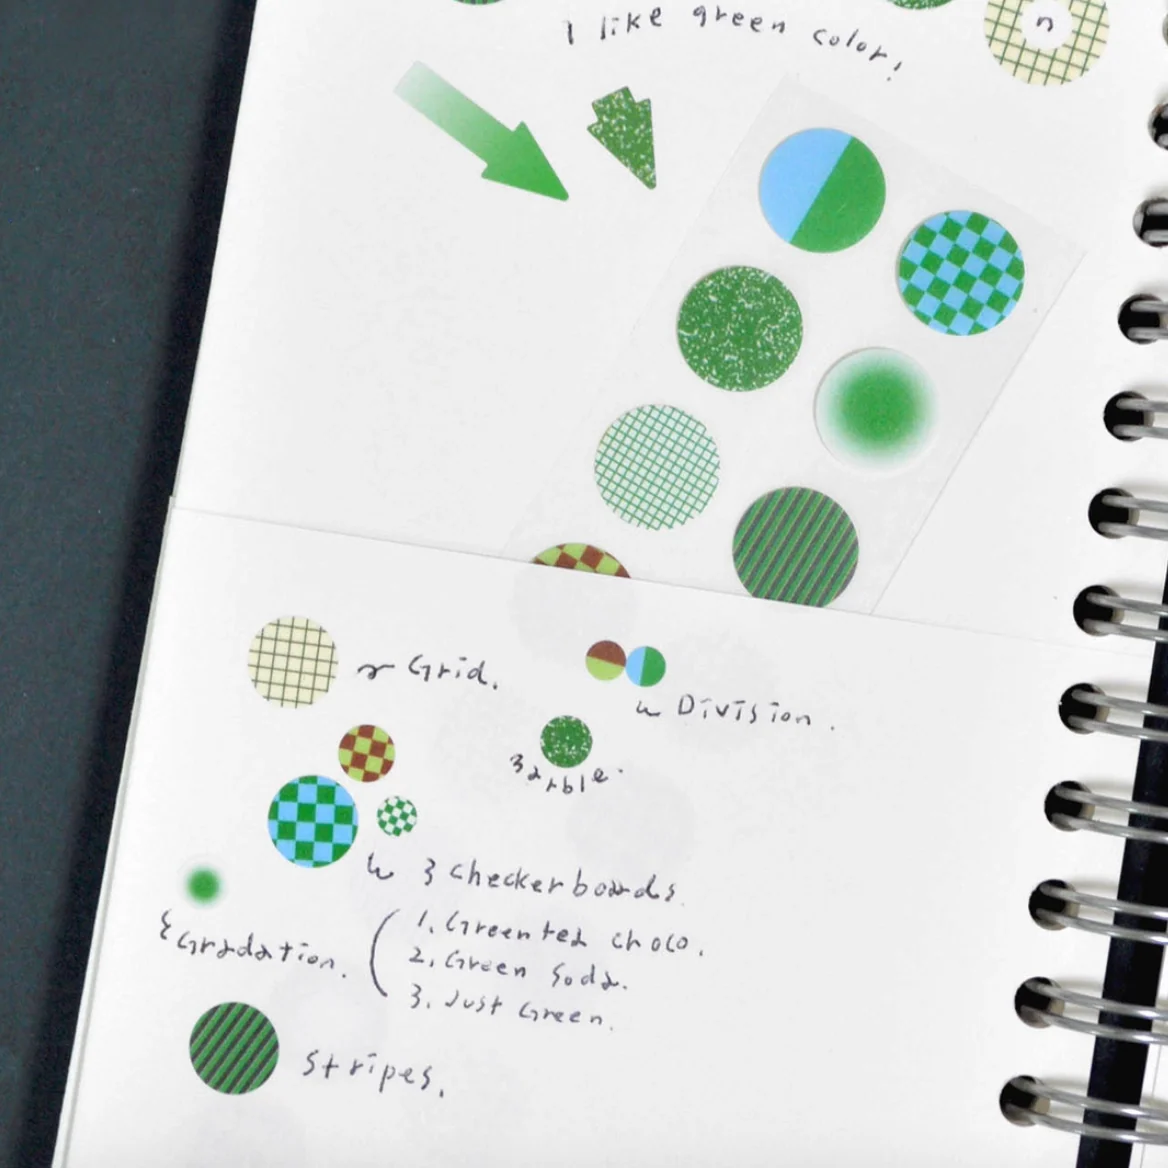 I like green color!
n
Grid.
Division.
3arble.
3 checkerboards.
1. Greentea choco.
2. Green Soda.
3. Just Green.
Gradation.
Stripes.